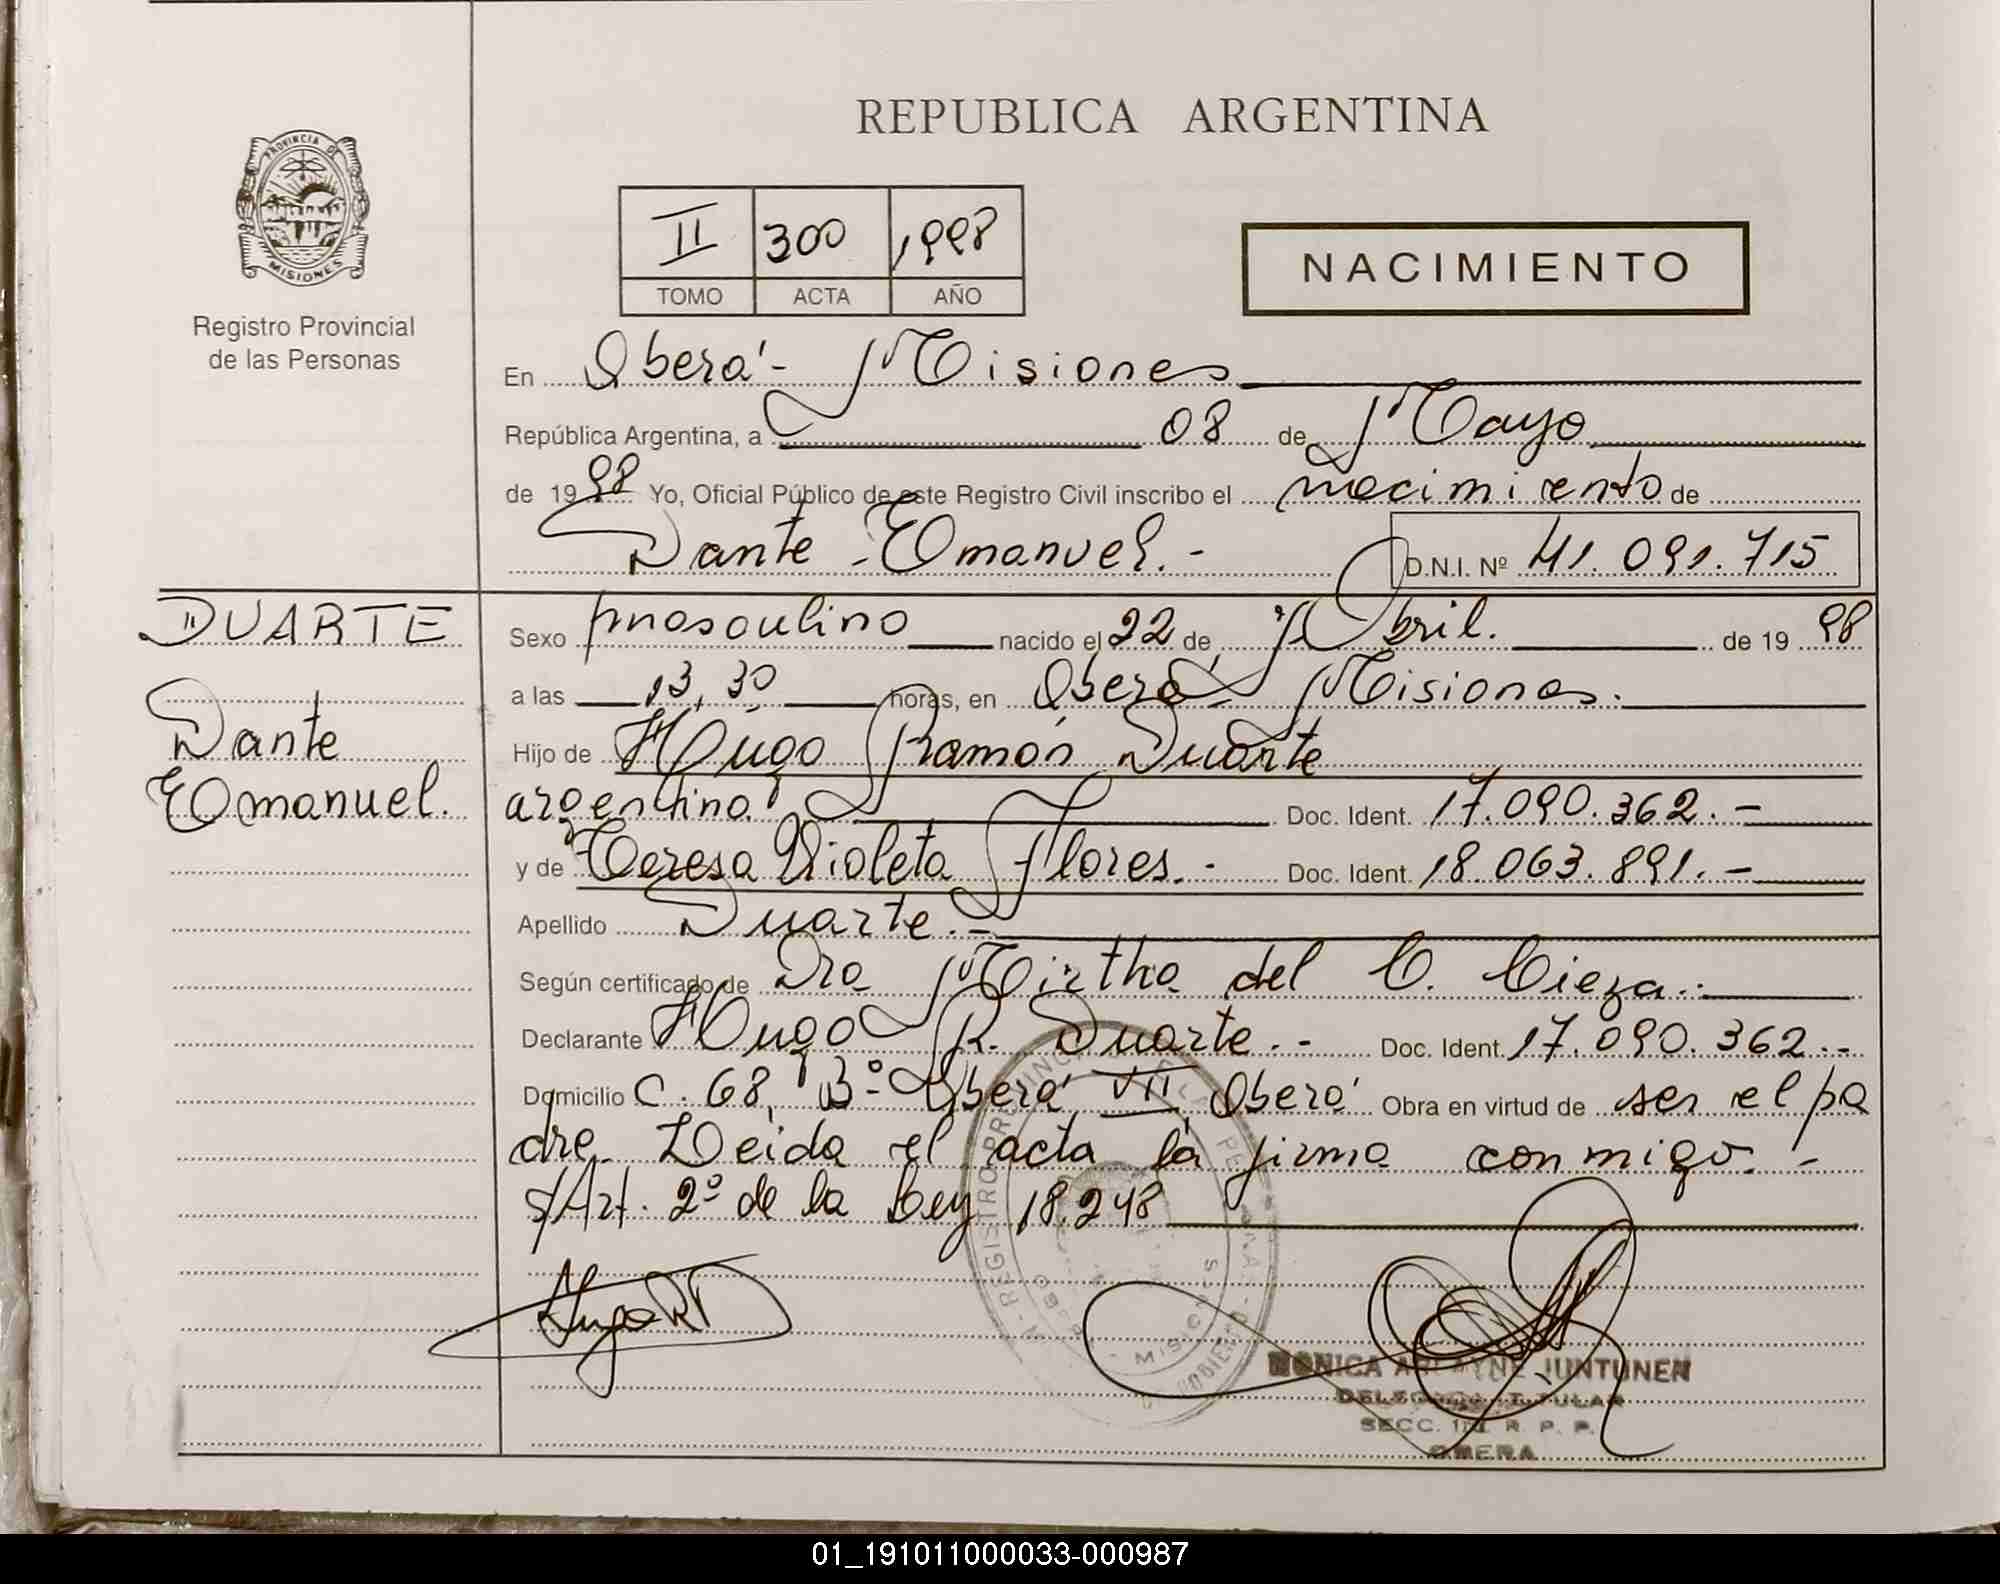 REPUBLICA ARGENTINA
PROVINCIA DE MISIONES
Registro Provincial
de las Personas
II 300 1998
TOMO ACTA AÑO
NACIMIENTO
En Oberá - Misiones
República Argentina, a 08 de Mayo
de 19 98 Yo, Oficial Público de este Registro Civil inscribo el nacimiento de
Dante Emanuel.- D.N.I. Nº 41.091.715
DUARTE
Dante
Emanuel.
Sexo masculino nacido el 22 de Abril. de 19 98
a las 13,30 horas, en Oberá Misiones.
Hijo de Hugo Ramón Duarte
argentino. Doc. Ident. 17.090.362.-
y de Teresa Violeta Flores.- Doc. Ident. 18.063.891.-
Apellido Duarte.-
Según certificado de Dra Mirtha del C. Cieza.-
Declarante Hugo R. Duarte.- Doc. Ident. 17.090.362.-
Domicilio C. 68, Bº Oberá VII Oberá Obra en virtud de ser el pa
dre. Leida el acta la firma conmigo.-
s/Art. 2º de la Ley 18.248
HugoRD
MONICA ARLAYNE JUNTUNEN
DELEGADA TITULAR
SECC. R. P. P.
OBERA
01_191011000033-000987